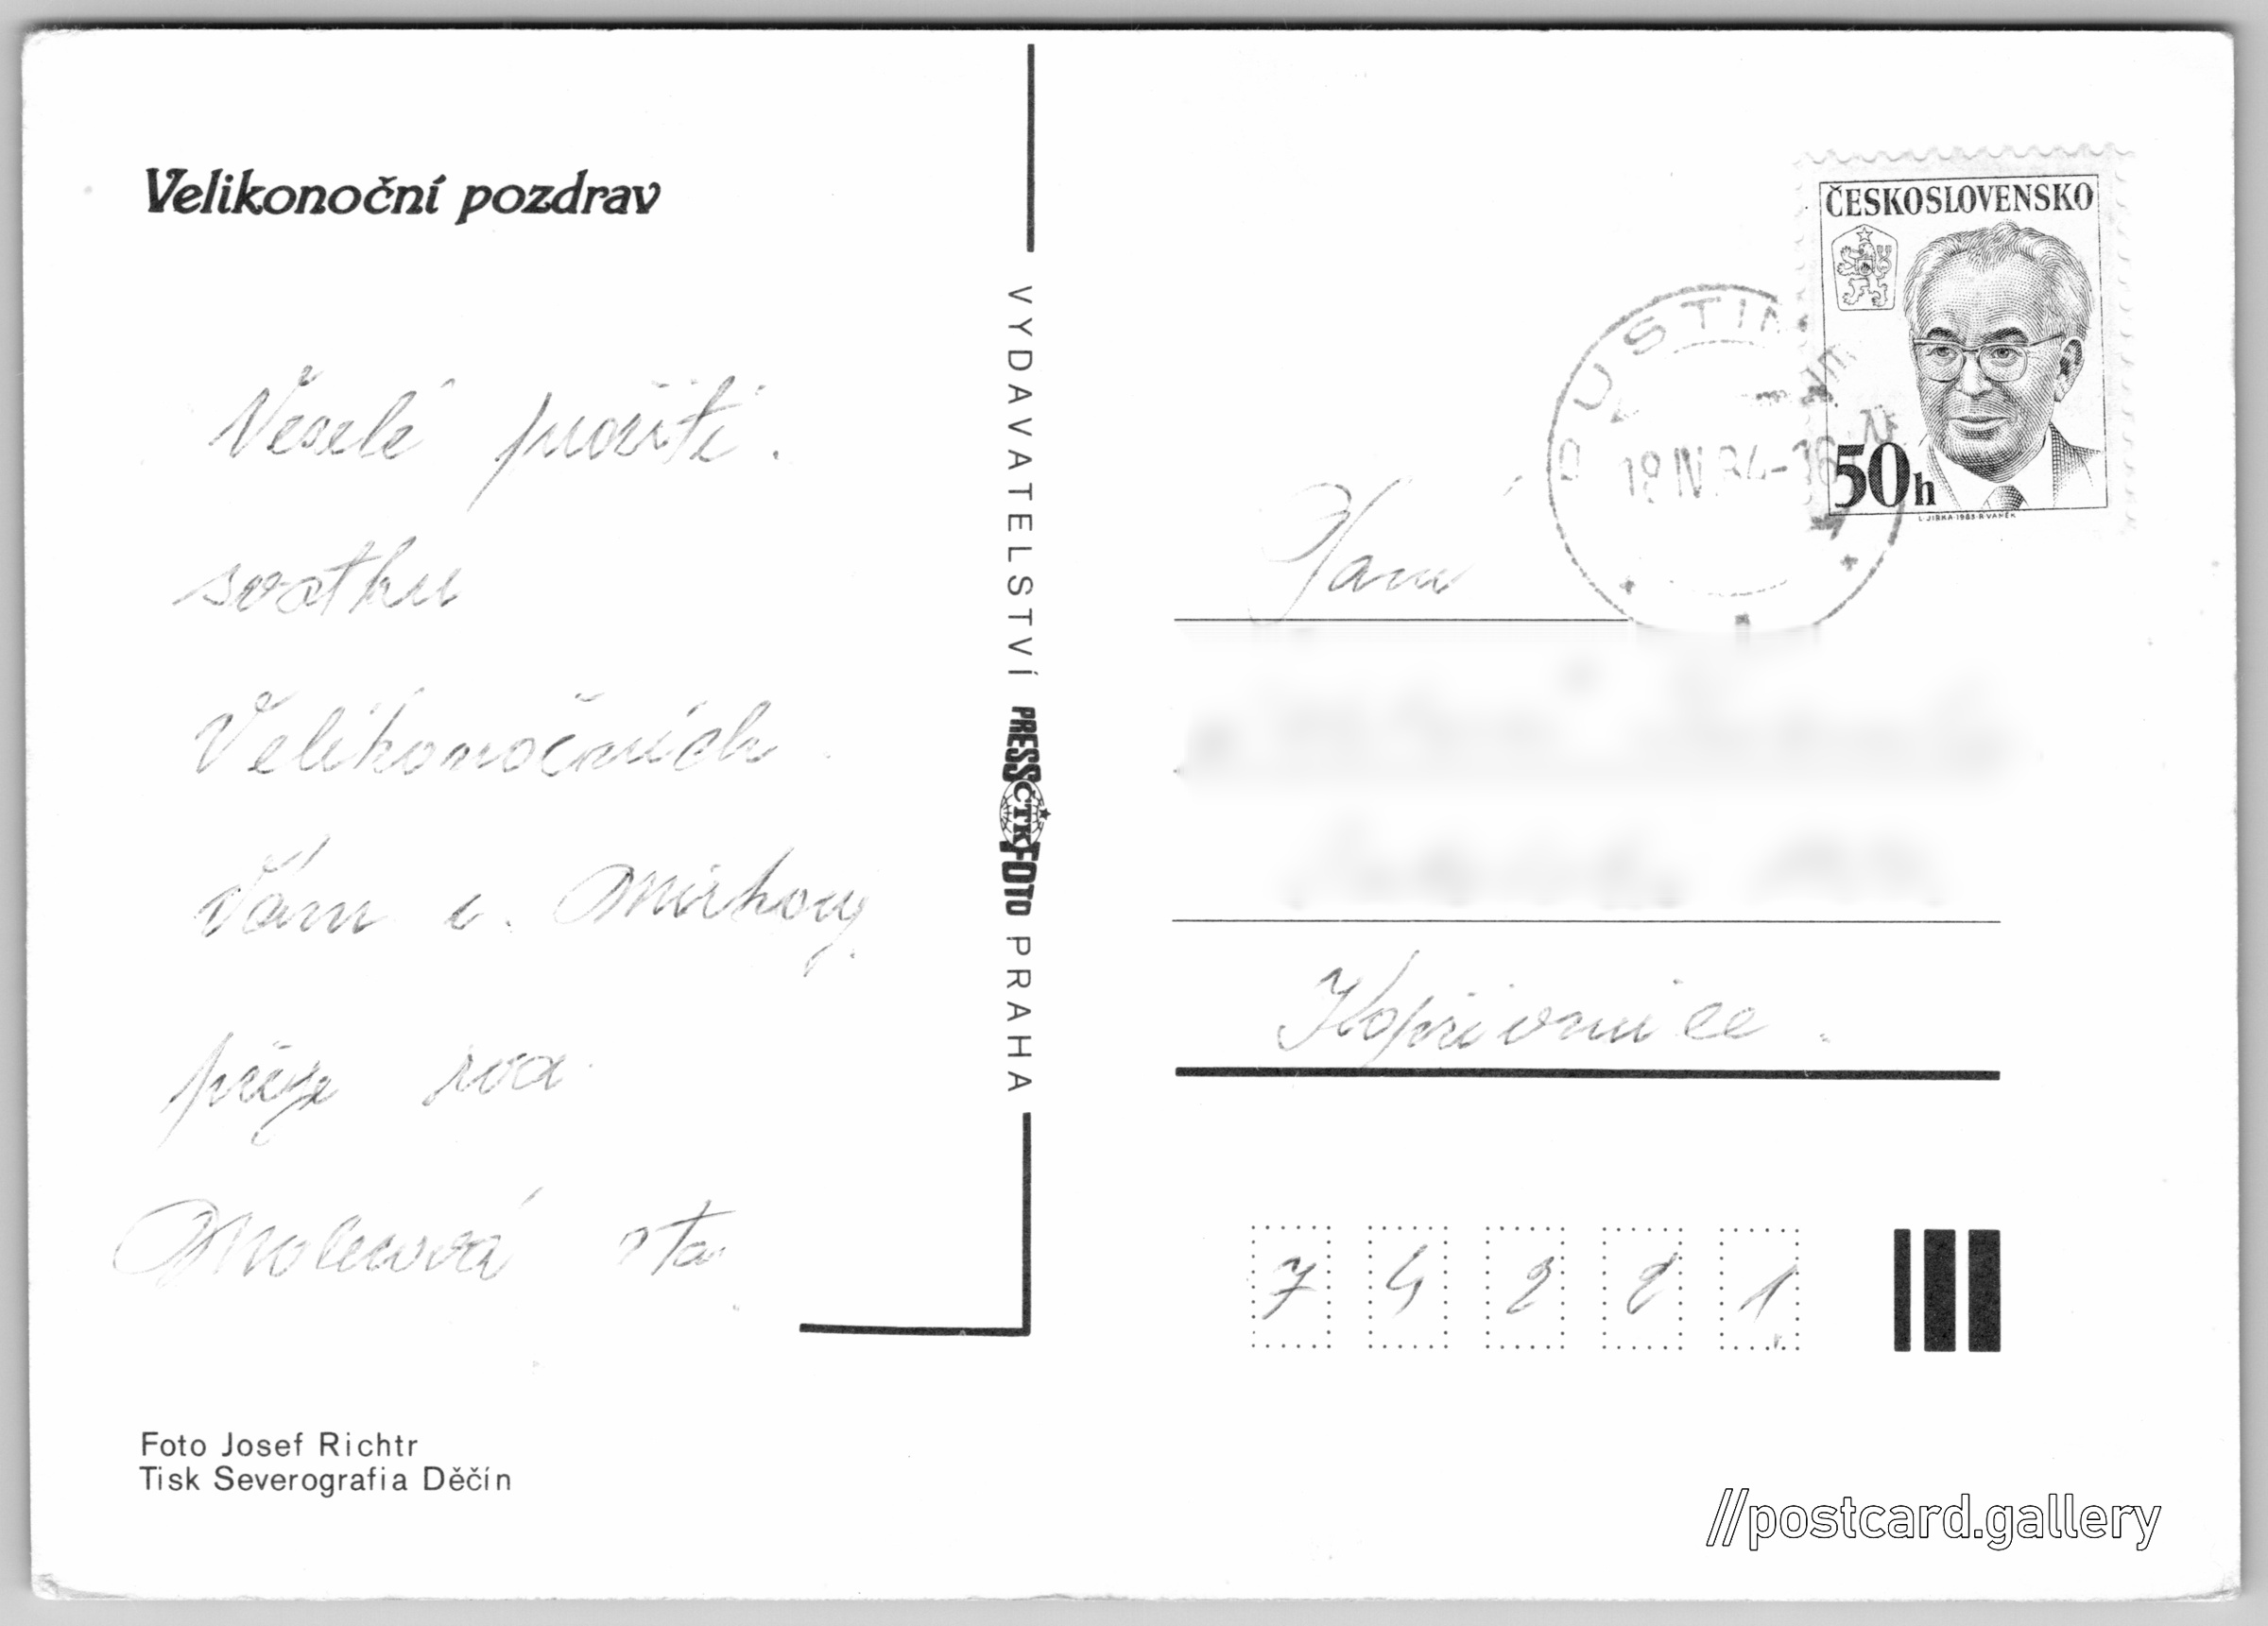 Velikonoční pozdrav
Veselé prožití
svátků
Velikonočních
Vám i
přeje
sta
VYDAVATELSTVÍ PRESSFOTO ČTK PRAHA
ČESKOSLOVENSKO
50h
L. JIRKA-1983-R. VANĚK
Paní
Kopřivnice
74221
Foto Josef Richtr
Tisk Severografia Děčín
//postcard.gallery